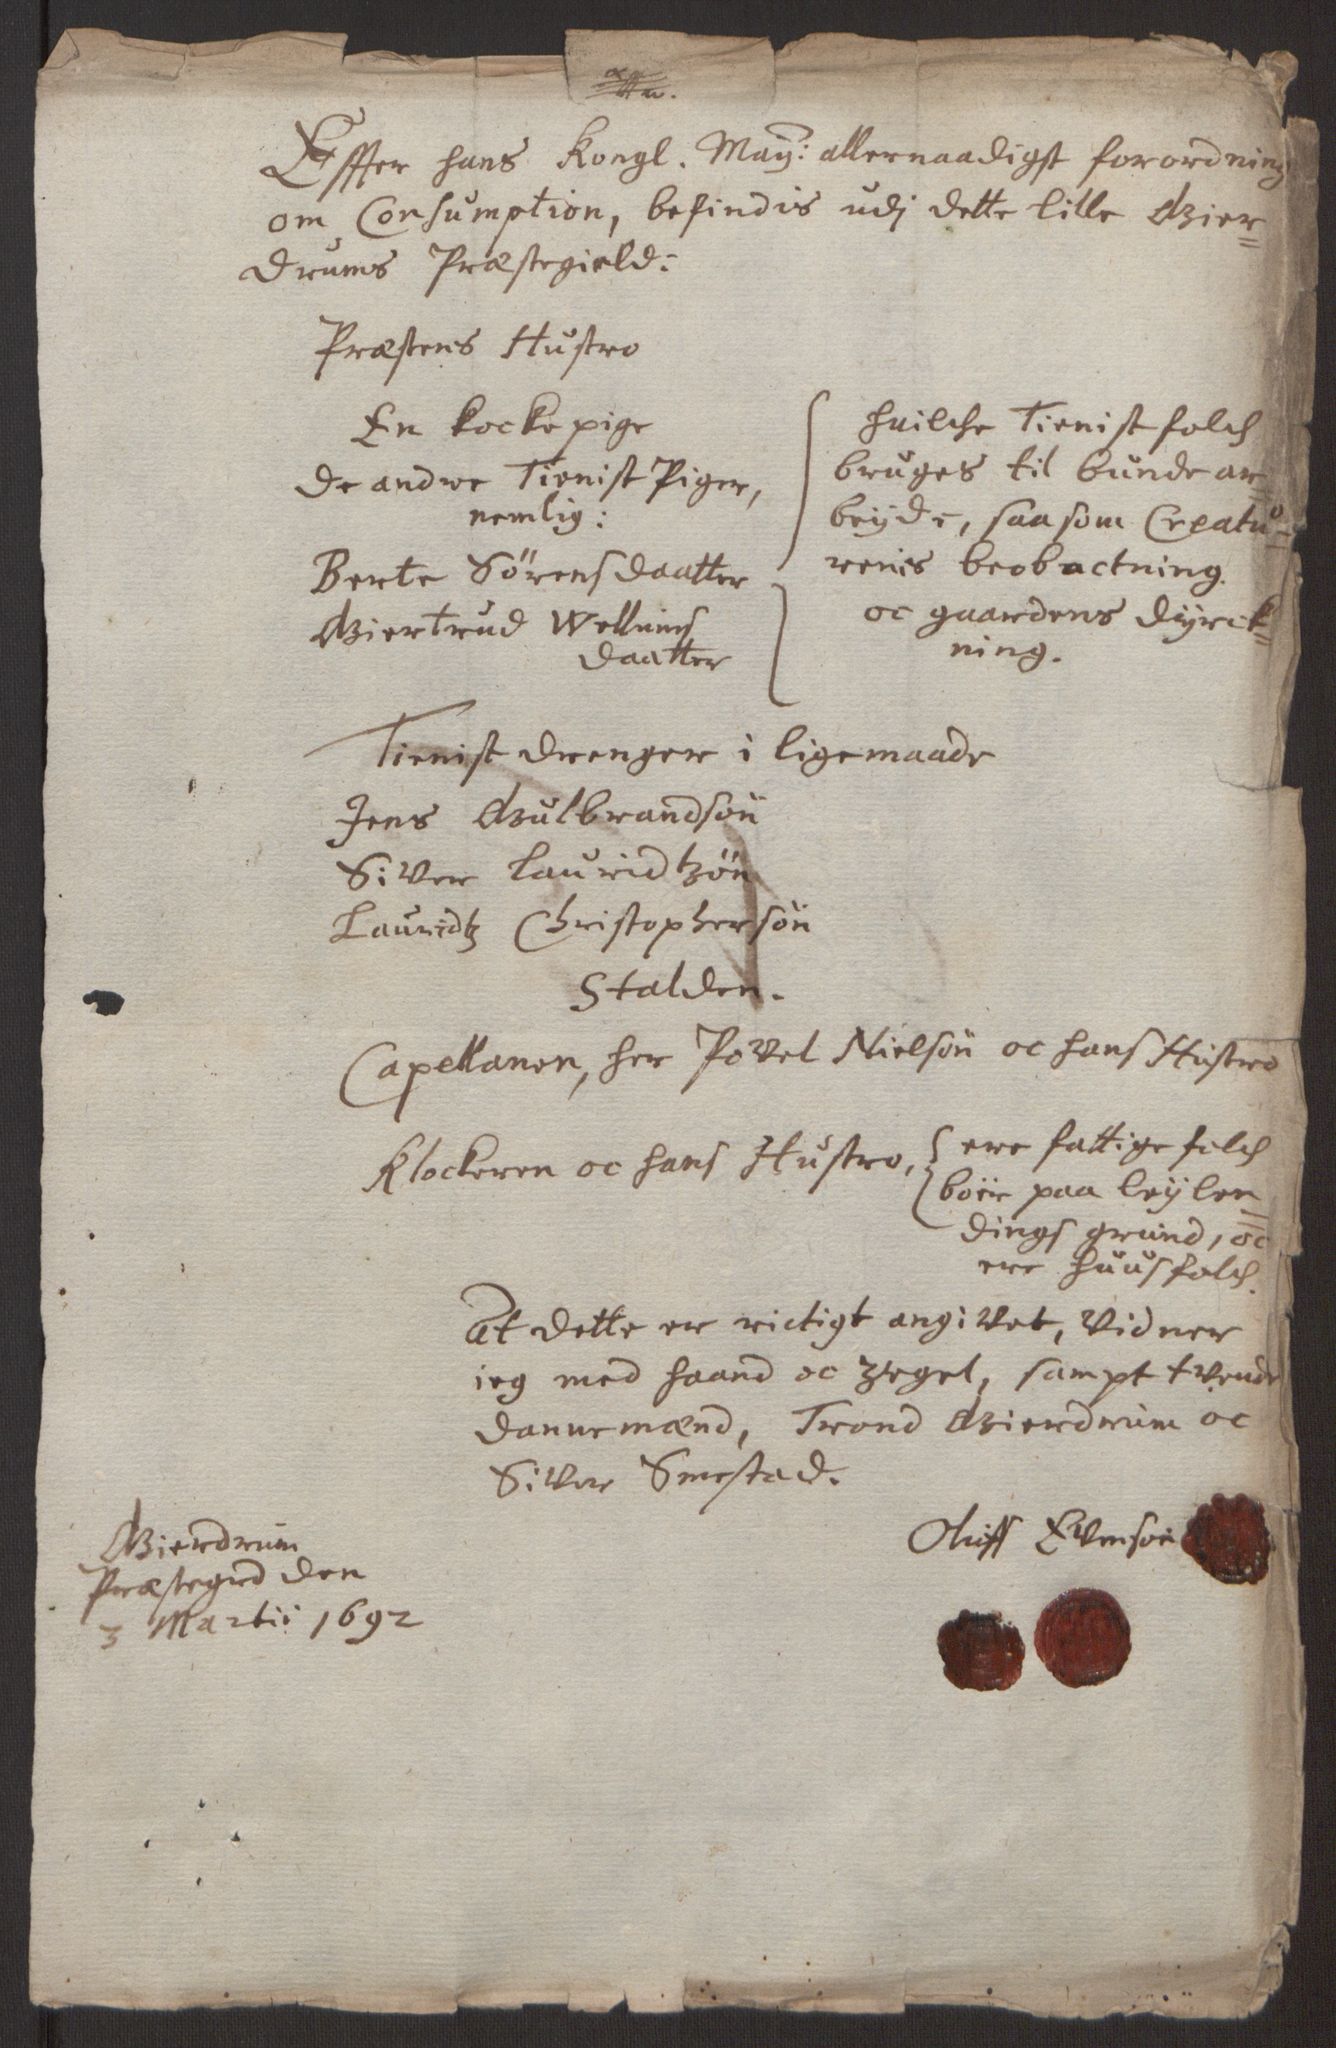 Effter hans Kongl. Maÿ: allernaadigst forordning
om Consumption, befindis udj dette lille Gier=
drums Præstegield:
Præstens Hustro
En kocke pige
De andre Tienist Piger,
nemlig:
Berte Sörens daatter
Giertrud Wellums
daatter
huilche Tienist folch
bruges til bunde ar=
beÿde, saa som Creatu=
renis beobactning.
oc gaardens dÿrck=
ning.
Tienist drenger i lige maade
Jens Gulbrandsøn
Siver Lauridtzøn
Lauridtz Christophersøn
Stalden.
Capellanen, her Povel Nielsøn oc hans Hustro
Klockeren oc hans Hustro,
ere fattige folch
böer paa leÿlen=
dings grund, oc
ere huusfolch.
At dette er rictigt angivet, Vidner
ieg med haand oc zegel, sampt tvende
dannemænd, Trond Gierdrum oc
Siver Smestad.
Oluff Evensøn
Gierdrum
Præstegrd den
3 Martii 1692